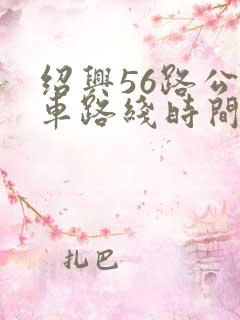 绍興56路公
車路綫時間
扎巴